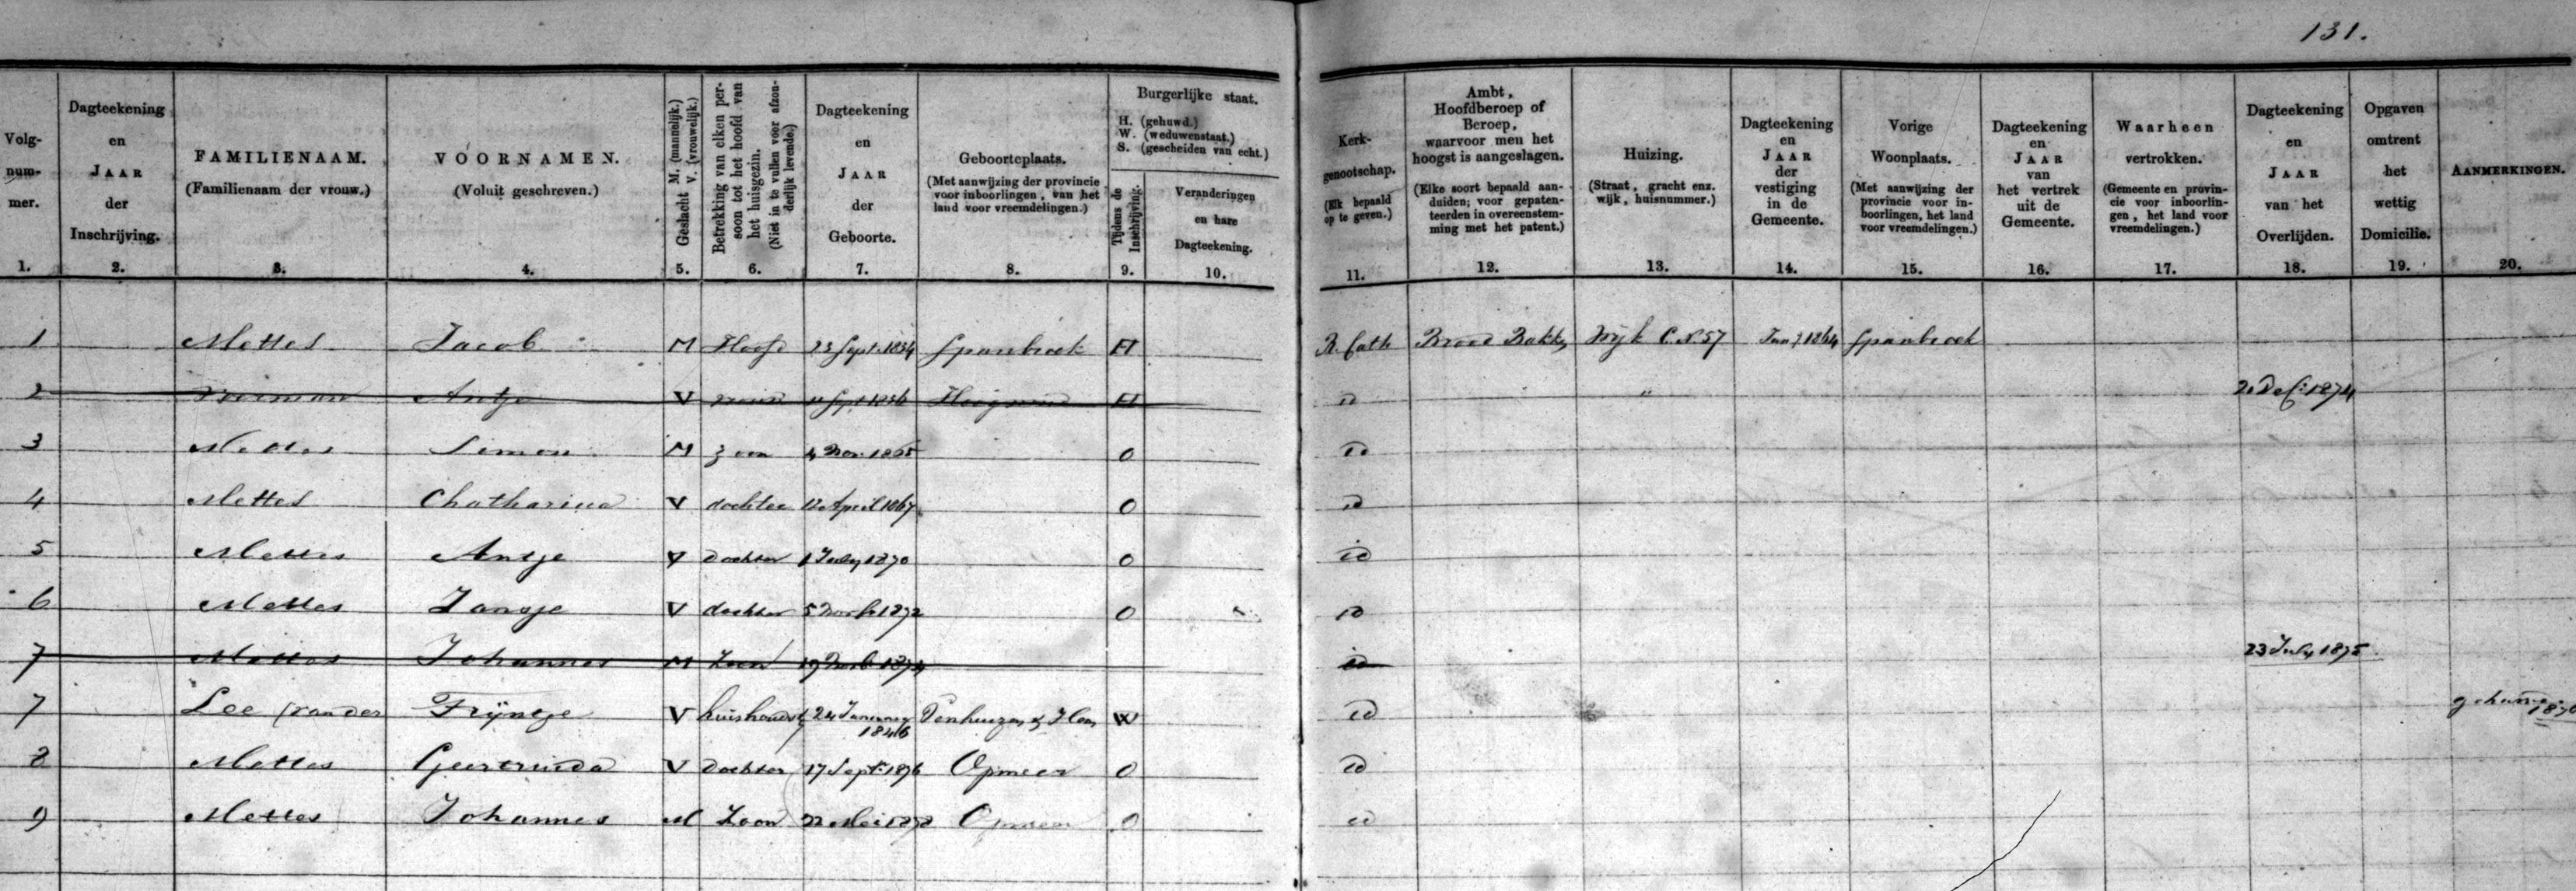 131.
Volg-
num-
mer.
1.
Dagteekening
en
JAAR
der
Inschrijving.
2.
FAMILIENAAM.
(Familienaam der vrouw.)
3.
VOORNAMEN.
(Voluit geschreven.)
4.
Geslacht M. (mannelijk.)
V. (vrouwelijk.)
5.
Betrekking van elken per-
soon tot het hoofd van
het huisgezin.
(Niet in te vullen voor afzon-
derlijk levende.)
6.
Dagteekening
en
JAAR
der
Geboorte.
7.
Geboorteplaats.
(Met aanwijzing der provincie
voor inboorlingen, van het
land voor vreemdelingen.)
8.
Burgerlijke staat.
H. (gehuwd.)
W. (weduwenstaat.)
S. (gescheiden van echt.)
Tijdens de
Inschrijving.
9.
Veranderingen
en hare
Dagteekening.
10.
Kerk-
genootschap.
(Elk bepaald
op te geven.)
11.
Ambt,
Hoofdberoep of
Beroep,
waarvoor men het
hoogst is aangeslagen.
(Elke soort bepaald aan-
duiden; voor gepaten-
teerden in overeenstem-
ming met het patent.)
12.
Huizing.
(Straat, gracht enz.
wijk, huisnummer.)
13.
Dagteekening
en
JAAR
der
vestiging
in de
Gemeente.
14.
Vorige
Woonplaats.
(Met aanwijzing der
provincie voor in-
boorlingen, het land
voor vreemdelingen.)
15.
Dagteekening
en
JAAR
van
het vertrek
uit de
Gemeente.
16.
Waarheen
vertrokken.
(Gemeente en provin-
cie voor inboorlin-
gen, het land voor
vreemdelingen.)
17.
Dagteekening
en
JAAR
van het
Overlijden.
18.
Opgaven
omtrent
het
wettig
Domicilie.
19.
AANMERKINGEN.
20.
1 Mettes Jacob M Hoofd 23 Sept. 1834 Spanbroek H R. Cath Brood Bakker Wijk C. N. 57 1864 Spanbroek
2 Antje V vrouw Sept 1836 H id " Dec: 1874
3 Mettes Simon M zoon 4 Nov. 1865 O id
4 Mettes Chatharina V dochter 12 April 1867 O id
5 Mettes Antje V dochter 1 July 1870 O id
6 Mettes Jansje V dochter 5 1872 O id
7 Mettes Johannes M Zoon 19 1874 id 23 July 1875
7 Lee (van der Trijntje V huishoudst 24 January 1846 W id 1876
8 Mettes Geertruida V dochter 17 Sept: 1876 Opmeer O id
9 Mettes Johannes M Zoon 22 Mei 1878 Opmeer O id